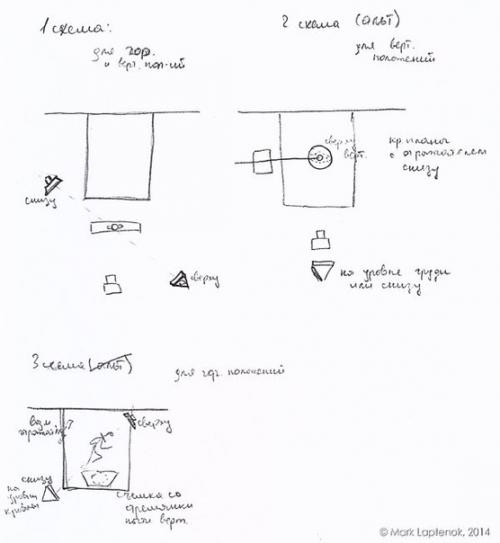 1 схема:
для гор.
и верт. пол-ий
2 схема (опыт)
для верт.
положений
сверху
верт.
кр. планы
с отражателем
снизу
снизу
сверху
на уровне груди
или снизу
3 схема (опыт)
для гор. положений
возм.
сверху
снизу
на уровне
съемка со
стремянки
почти верт.
© Mark Laptenok, 2014